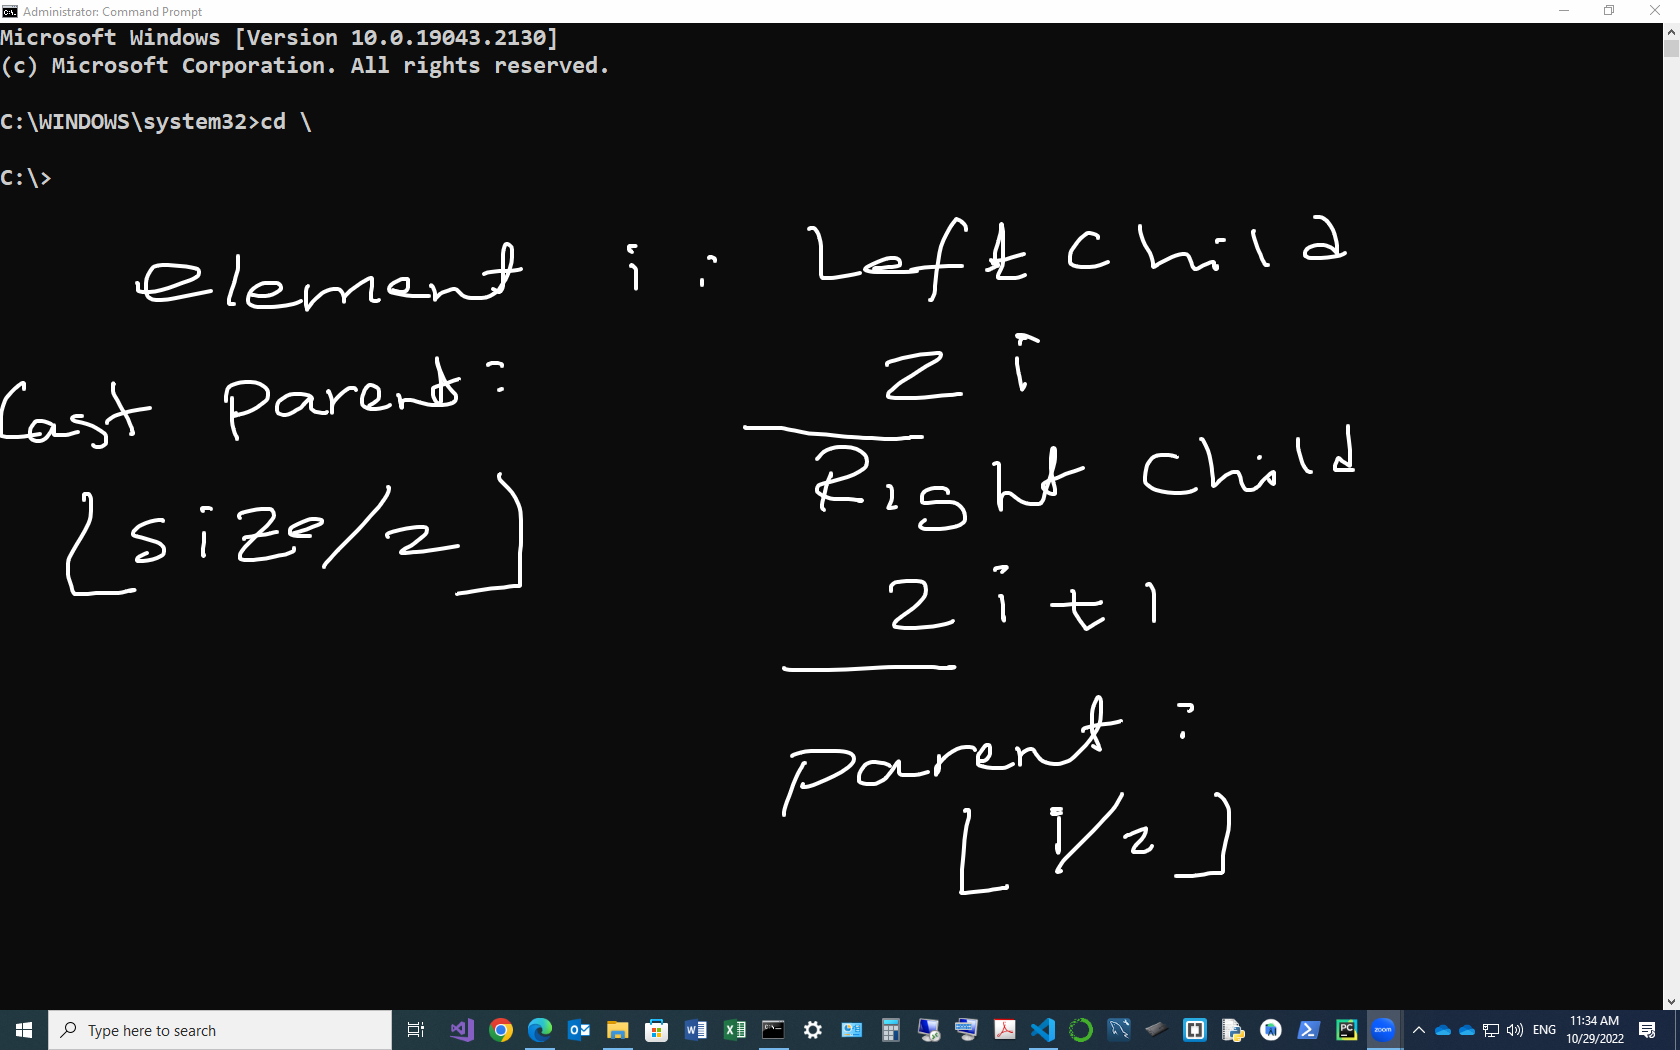 Administrator: Command Prompt
Microsoft Windows [Version 10.0.19043.2130]
(c) Microsoft Corporation. All rights reserved.
C:\WINDOWS\system32>cd \
C:\>
element i : Left Child
2 i
Last parent:
Right Child
⌊size/2⌋
2 i + 1
parent:
⌊i/2⌋
Type here to search
ENG
11:34 AM
10/29/2022
zoom